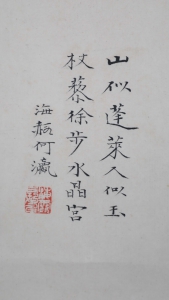 山似蓬萊人似玉
杖藜徐步水晶宮
海瓠何瀛